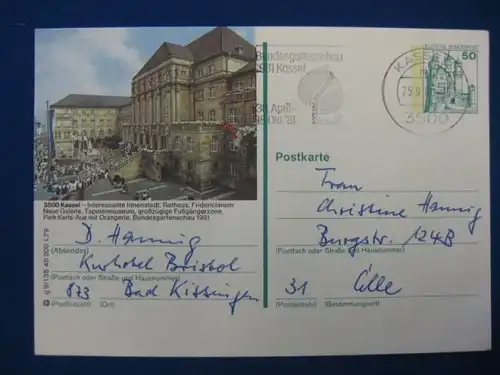 Bundesgartenschau
1981 Kassel
30. April-
18. Okt. 81
KASSEL
25.9
3500
DEUTSCHE BUNDESPOST
50
3500 Kassel – Interessante Innenstadt: Rathaus, Fridericianum
Neue Galerie, Tapetenmuseum, großzügige Fußgängerzone,
Park Karls-Aue mit Orangerie, Bundesgartenschau 1981
Postkarte
D. Hennig
(Absender)
Kurhotel Bristol
(Postfach oder Straße und Hausnummer)
873 Bad Kissingen
(Postleitzahl) (Ort)
Frau
Christine Hennig
Burgstr. 124B
(Postfach oder Straße und Hausnummer)
31 Celle
(Postleitzahl) (Bestimmungsort)